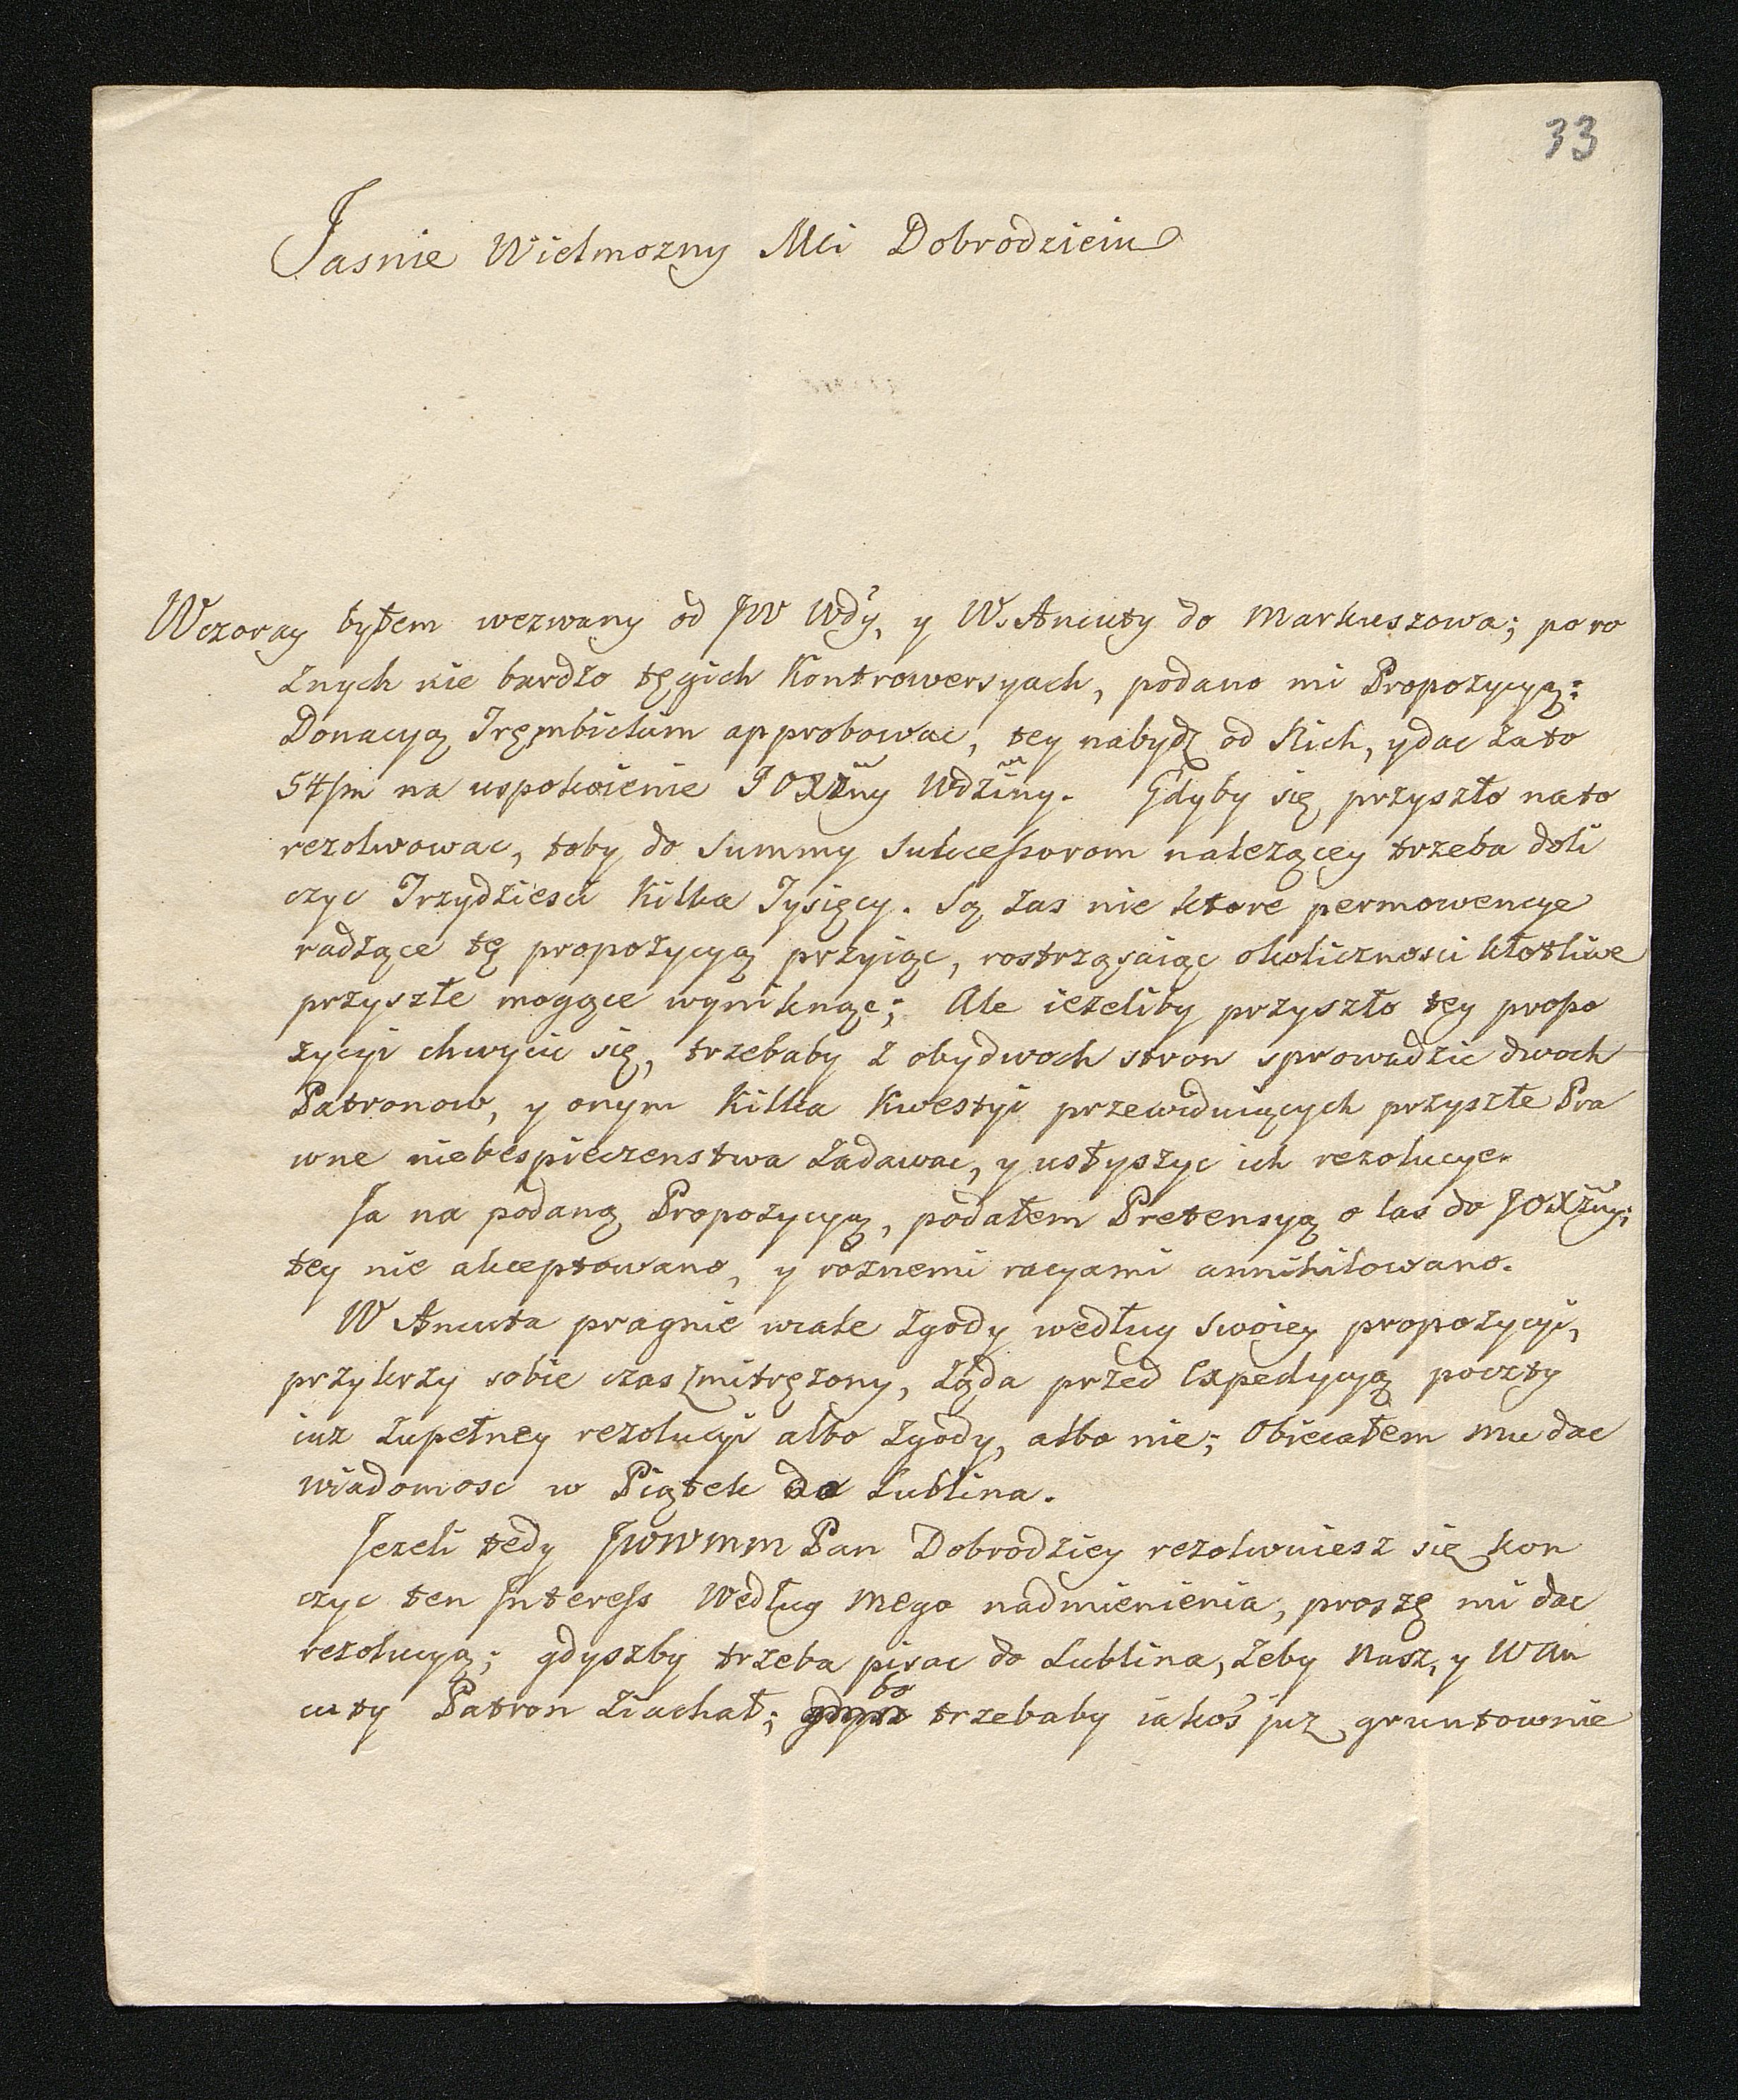 33
Jasnie Wielmozny Mci Dobrodzieiu
Wczoray byłem wezwany od JW Wdy, y W. Ancuty do Markuszowa; po ro
znych nie bardzo tęgich Kontrowersyach, podano mi Propozycyą:
Donacyą Trębickim approbowac, tey nabydz od Nich, y dac za to
54/m na uspokoienie JOXzny Wdziny. Gdyby się przyszło na to
rezolwowac, toby do Summy Sukcessorom nalezącey trzeba doli
czyc Trzydziesci Kilka Tysięcy. Są zas nie ktore permowencye
radzące tę propozycyą przyiąc, rostrząsaiąc okolicznosci kłotliwe
przyszłe mogące wyniknąc; Ale iezeliby przyszło tey propo
zycyi chwycic się, trzebaby z obydwoch stron sprowadzic dwoch
Patronow, y onym Kilka Kwestyi przewiduiących przyszłe Pra
wne niebespieczenstwa zadawac, y usłyszyc ich rezolucye.
Ja na podaną Propozycyą, podałem Pretensyą o las do JOXzny;
tey nie akceptowano, y roznemi racyami annihilowano.
W Ancuta pragnie wcale zgody według swoiey propozycyi,
przykrzy sobie czas zmitręzony, ząda przed Expedycyą poczty
iuz zupełney rezolucyi albo zgody, albo nie; Obiecałem mu dac
wiadomosc w Piątek do Lublina.
Jezeli tedy JWWMM Pan Dobrodziey rezolwuiesz się kon
czyc ten Interess Według mego nadmienienia, proszę mi dac
rezolucyą; gdyszby trzeba pisac do Lublina, zeby Nasz, y W An
cuty Patron ziachał; bo trzebaby iakoś juz gruntownie